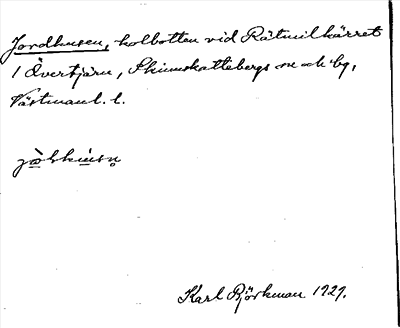 Jordhusen, kolbotten vid Rätmilkärret
i Övertjärn, Skinnskattebergs sn och bg,
Västmanl. l.
Karl Björkman 1929.